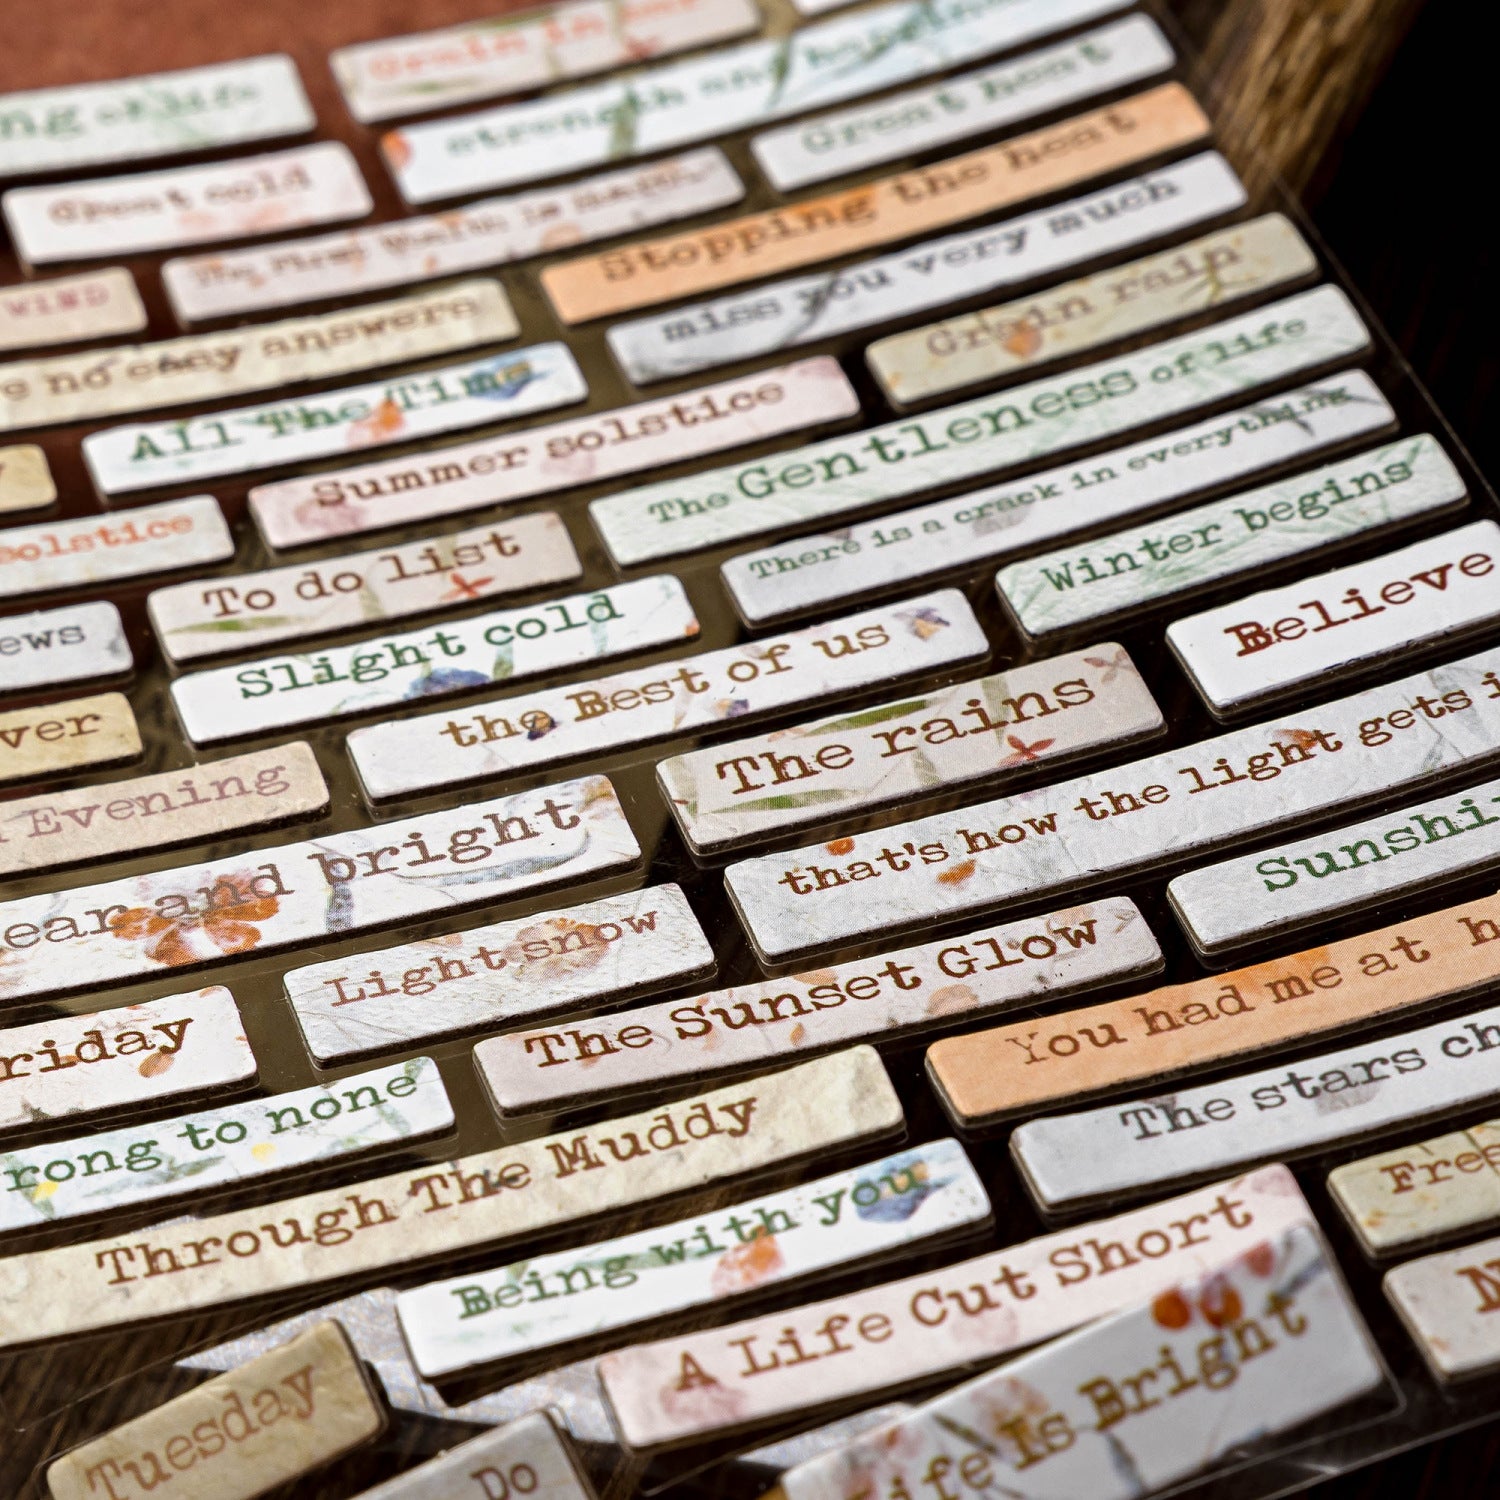 Grain in ear
ng of life
strength and happiness
Great heat
Great cold
The First Wealth is
Stopping the heat
miss you very much
WIND
no easy answers
Grain rain
All The Time
Summer solstice
The Gentleness of life
There is a crack in everything
solstice
To do list
Winter begins
Believe
ews
Slight cold
the Best of us
ver
The rains
Evening
that's how the light gets i
ear and bright
Sunshi
Light snow
The Sunset Glow
You had me at h
riday
The stars ch
rong to none
Through The Muddy
Fres
Being with you
A Life Cut Short
N
Life Is Bright
Tuesday
Do